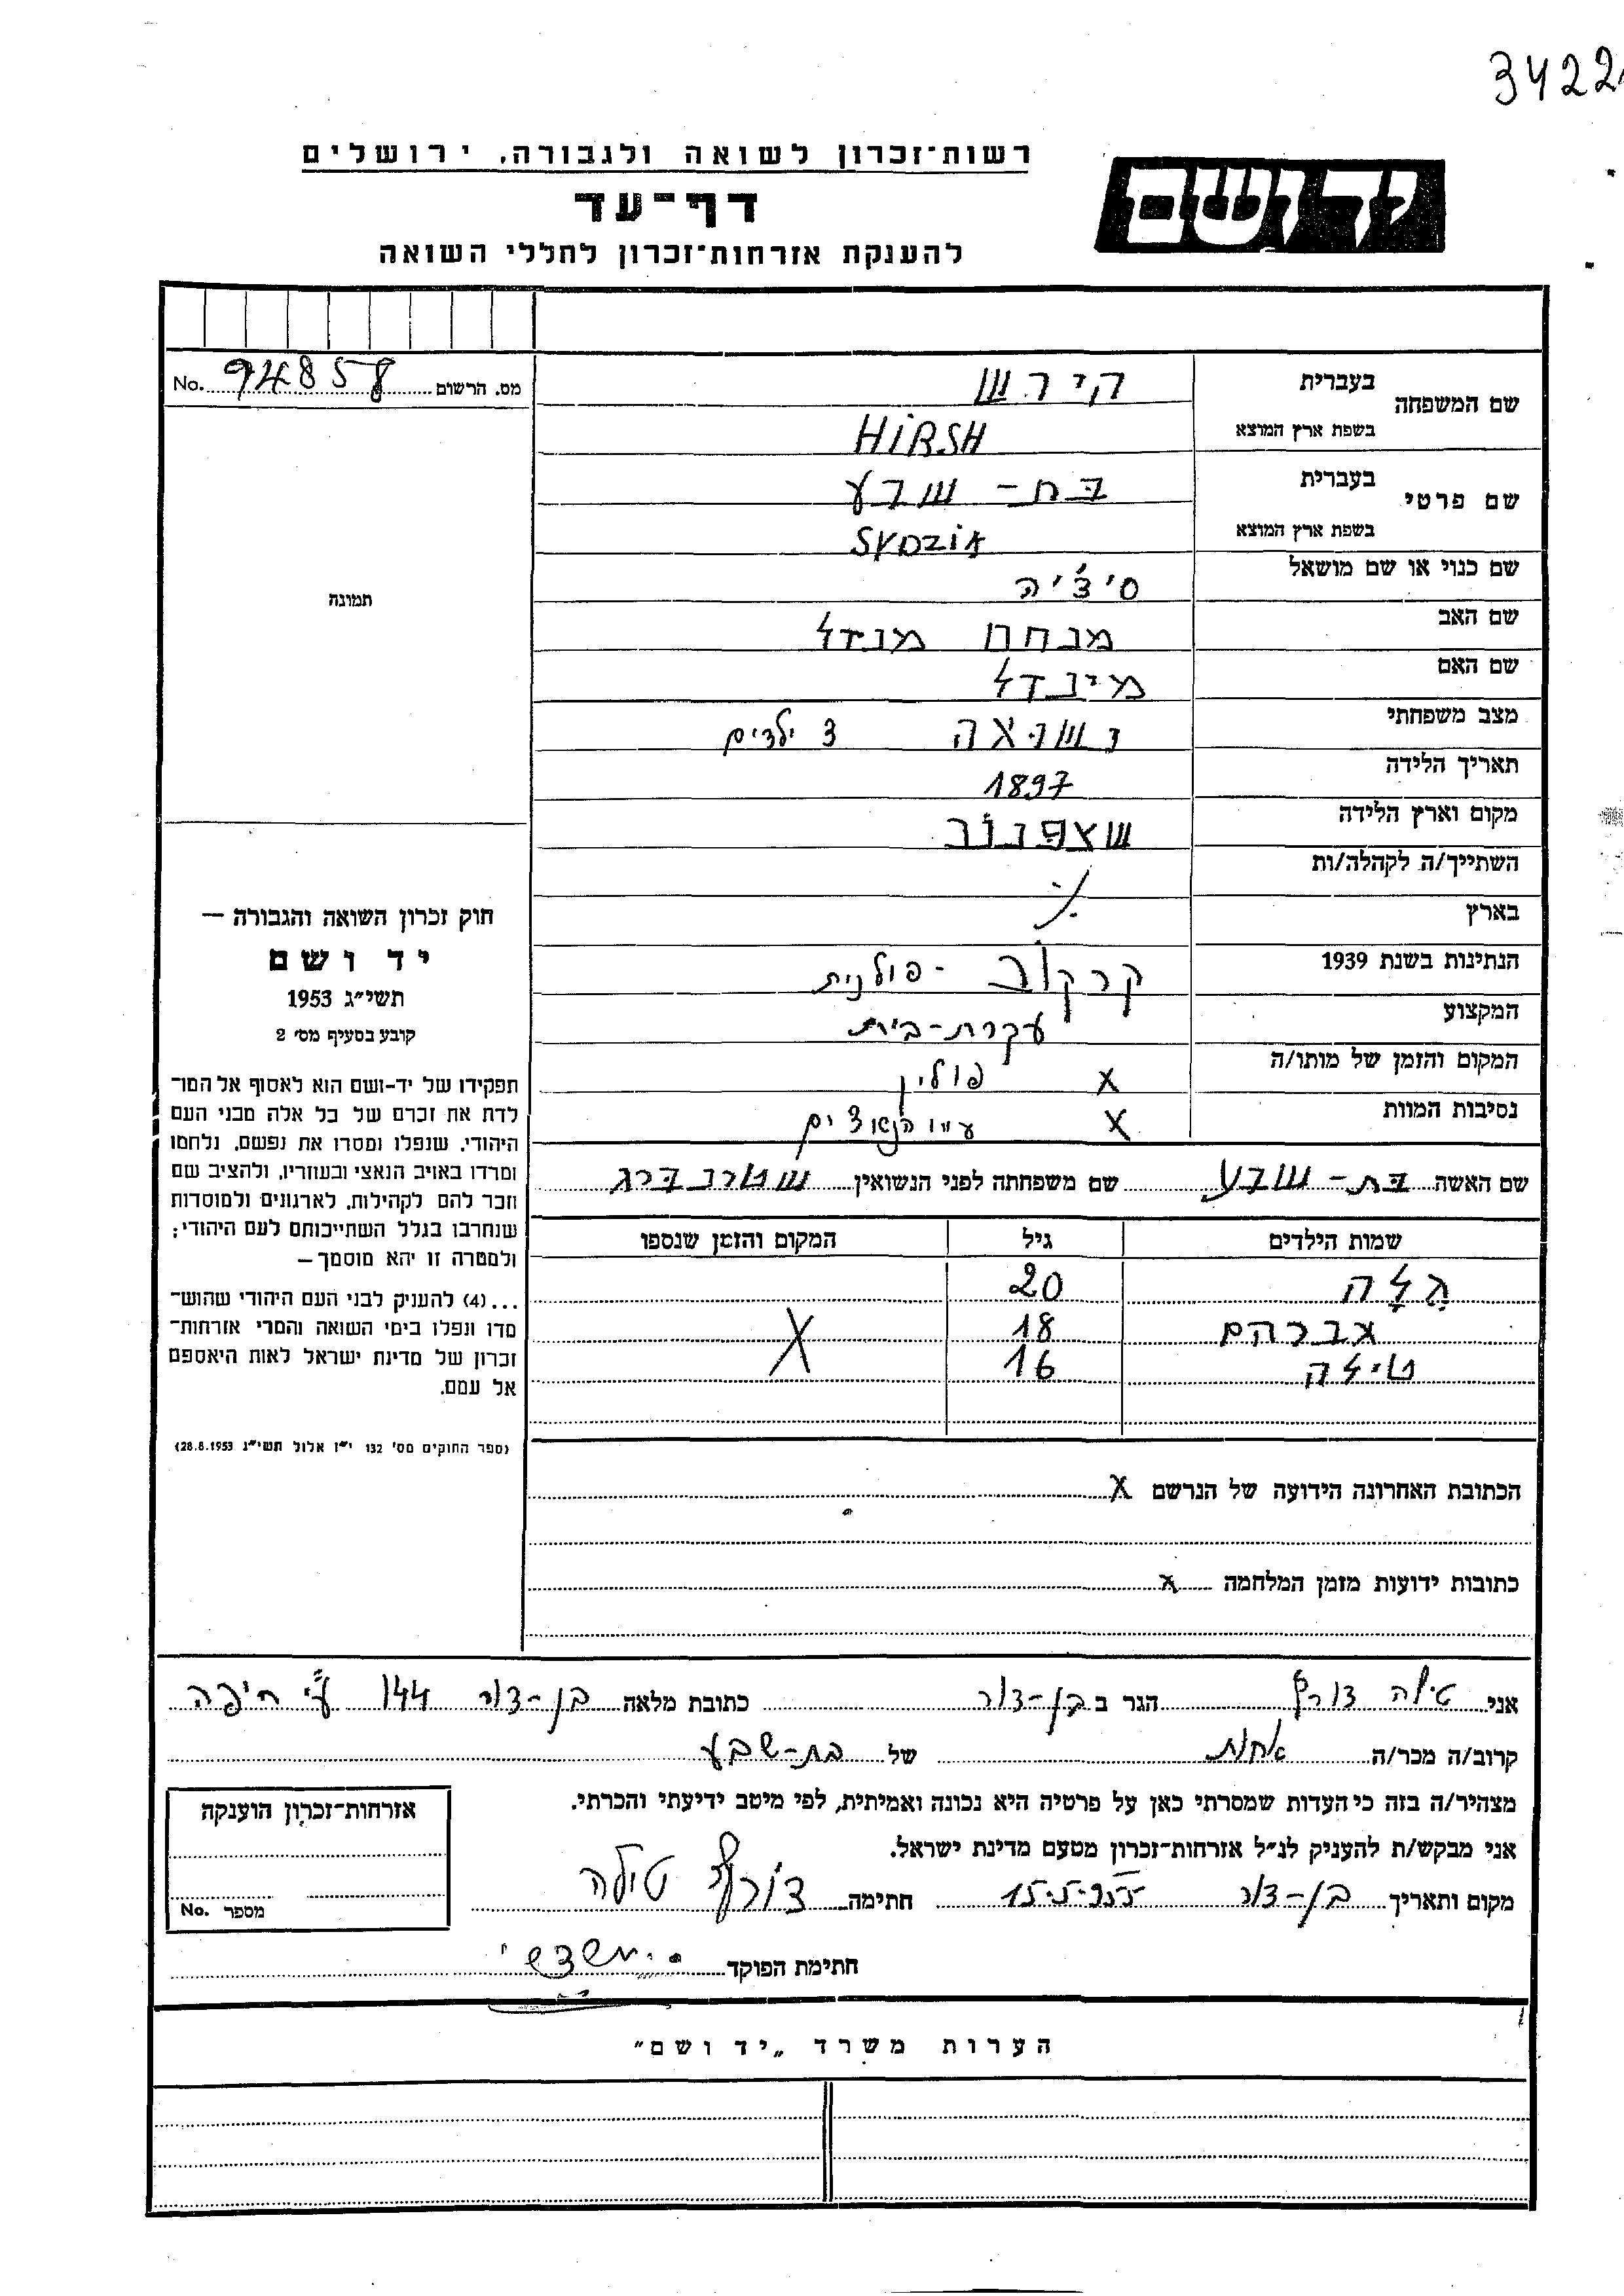 3422
רשות־זכרון לשואה ולגבורה, ירושלים
יד ושם
דף־עד
להענקת אזרחות־זכרון לחללי השואה
מס. הרשום 94858 No.
שם המשפחה בעברית הירש
בשפת ארץ המוצא HiRSH
שם פרטי בעברית בת-שבע
בשפת ארץ המוצא
שם כנוי או שם מושאל
שם האב מנחם מנדל
שם האם מינדל
מצב משפחתי נשואה 3 ילדים
תאריך הלידה 1897
מקום וארץ הלידה
השתייך/ה לקהלה/ות
בארץ
הנתינות בשנת 1939 קרקוב - פולנית
המקצוע עקרת-בית
המקום והזמן של מותו/ה X פולין
נסיבות המוות X ע״י הנאצים
שם האשה בת-שבע שם משפחתה לפני הנשואין שטרנברג
שמות הילדים גיל המקום והזמן שנספו
גלה 20
אברהם 18 X
טילה 16
הכתובת האחרונה הידועה של הנרשם X
כתובות ידועות מזמן המלחמה x
תמונה
חוק זכרון השואה והגבורה —
יד ושם
תשי״ג 1953
קובע בסעיף מס׳ 2
תפקידו של יד-ושם הוא לאסוף אל המו־
לדת את זכרם של כל אלה מבני העם
היהודי, שנפלו ומסרו את נפשם, נלחמו
ומרדו באויב הנאצי ובעוזריו, ולהציב שם
וזכר להם לקהילות, לארגונים ולמוסדות
שנחרבו בגלל השתייכותם לעם היהודי;
ולמטרה זו יהא מוסמך —
...(4) להעניק לבני העם היהודי שהוש־
מדו ונפלו בימי השואה והמרי אזרחות־
זכרון של מדינת ישראל לאות היאספם
אל עמם.
(ספר החוקים מס׳ 132 י״ז אלול תשי״ג 28.8.1953)
אני טילה דורף הגר ב בן-דור כתובת מלאה בן-דור 144 ע״י חיפה
קרוב/ה מכר/ה אחות של בת-שבע
מצהיר/ה בזה כי העדות שמסרתי כאן על פרטיה היא נכונה ואמיתית, לפי מיטב ידיעתי והכרתי.
אני מבקש/ת להעניק לנ״ל אזרחות־זכרון מטעם מדינת ישראל.
מקום ותאריך בן-דור 15.5.955 חתימה דורף טילה
חתימת הפוקד
אזרחות־זכרון הוענקה
מספר No.
הערות משרד „יד ושם״